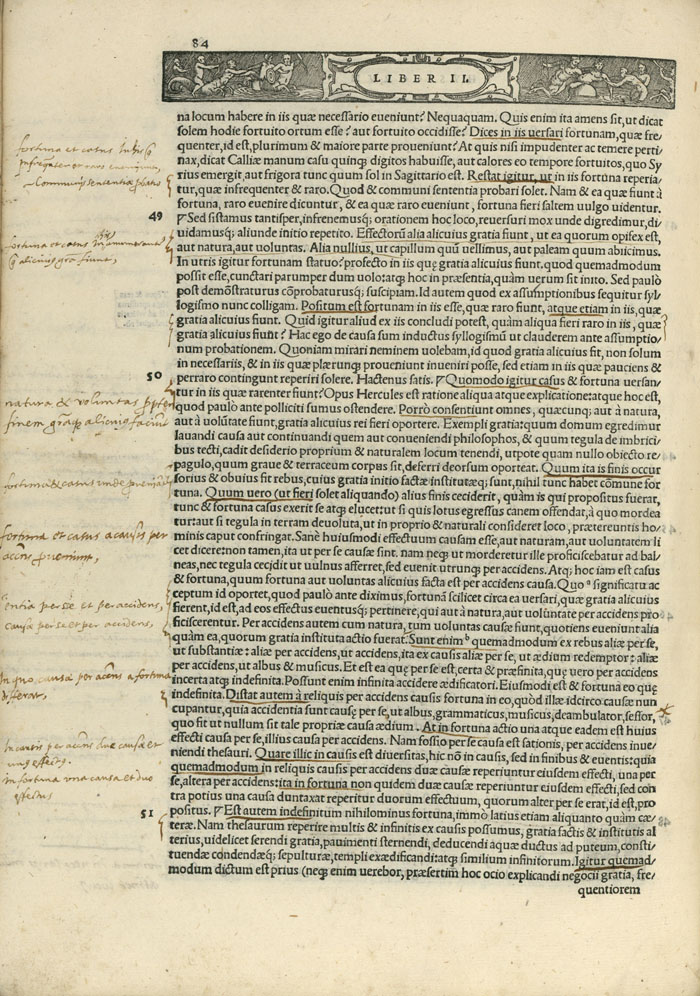 84
LIBER II.
na locum habere in iis quæ necessario eueniunt? Nequaquam. Quis enim ita amens sit, ut dicat
solem hodie fortuito ortum esse? aut fortuito occidisse? Dices in iis uersari fortunam, quæ fre/
quenter, id est, plurimum & maiore parte proueniunt? At quis nisi impudenter ac temere perti/
nax, dicat Calliæ manum casu quinq; digitos habuisse, aut calores eo tempore fortuitos, quo Sy
rius emergit, aut frigora tunc quum sol in Sagittario est. Restat igitur, ut in iis fortuna reperia/
tur, quæ infrequenter & raro. Quod & communi sententia probari solet. Nam & ea quæ fiunt à
fortuna, raro euenire dicuntur, & ea quæ raro eueniunt, fortuna fieri saltem uulgo uidentur.
49
Sed sistamus tantisper, infrenemusq; orationem hoc loco, reuersuri mox unde digredimur, di/
uidamusq; aliunde initio repetito. Effectorũ alia alicuius gratia fiunt, ut ea quorum opifex est,
aut natura, aut uoluntas. Alia nullius, ut capillum quũ uellimus, aut paleam quum abiicimus.
In utris igitur fortunam statuo? profecto in iis quę gratia alicuius fiunt. quod quemadmodum
possit esse, cunctari parumper dum uolo: atq; hoc in præsentia, quàm uerum sit inito. Sed paulò
post demõstraturus cõprobaturusq; suscipiam. Id autem quod ex assumptionibus sequitur syl/
logismo nunc colligam. Positum est fortunam in iis esse, quæ raro fiunt, atque etiam in iis, quæ
gratia alicuius fiunt. Quid igitur aliud ex iis concludi potest, quàm aliqua fieri raro in iis, quæ
gratia alicuius fiunt? Hac ego de causa sum inductus syllogismũ ut clauderem ante assumptio/
num probationem. Quoniam mirari neminem uolebam, id quod gratia alicuius fit, non solum
in necessariis, & in iis quæ plærunq; proueniunt inueniri posse, sed etiam in iis quæ pauciens &
50
perraro contingunt reperiri solere. Hactenus satis. Quomodo igitur casus & fortuna uersan/
tur in iis quæ rarenter fiunt? Opus Hercules est ratione aliqua atque explicatione: atque hoc est,
quod paulò ante polliciti sumus ostendere. Porrò consentiunt omnes, quæcunq; aut à natura,
aut à uolũtate fiunt, gratia alicuius rei fieri oportere. Exempli gratia: quum domum egredimur
lauandi causa aut continuandi quem aut conueniendi philosophos, & quum tegula de imbrici/
bus tecti, cadit desiderio proprium & naturalem locum tenendi, utpote quam nullo obiecto re/
pagulo, quum graue & terraceum corpus sit, deferri deorsum oporteat. Quum ita is finis occur
sorius & obuius fit rebus, cuius gratia initio factæ institutæq; sunt, nihil tunc habet cõmune for
tuna. Quum uero (ut fieri solet aliquando) alius finis ceciderit, quàm is qui propositus fuerat,
tunc & fortuna casus exerit se atq; elucet: ut si quis lotus egressus canem offendat, à quo mordea
tur: aut si tegula in terram deuoluta, ut in proprio & naturali consideret loco, prætereuntis ho/
minis caput confringat. Sanè huiusmodi effectuum causam esse, aut naturam, aut uoluntatem li
cet dicere: non tamen, ita ut per se causæ sint. nam neq; ut morderetur ille proficiscebatur ad bal/
neas, nec tegula cecidit ut uulnus afferret, sed euenit utrunq; per accidens. Atq; hoc iam est casus
& fortuna, quum fortuna aut uoluntas alicuius facta est per accidens causa. Quo significatu ac
ceptum id oportet, quod paulò ante diximus, fortunã scilicet circa ea uersari, quæ gratia alicuius
fierent, id est, ad eos effectus euentusq; pertinere, qui aut à natura, aut uoluntate per accidens pro
ficiscerentur. Per accidens autem cum natura, tum uoluntas causæ fiunt, quotiens eueniunt alia
quàm ea, quorum gratia instituta actio fuerat. Sunt enim quemadmodum ex rebus aliæ per se,
ut substantiæ: aliæ per accidens, ut accidens, ita ex causis aliæ per se, ut ædium redemptor: aliæ
per accidens, ut albus & musicus. Et est ea quę per se est, certa & præfinita, quę uero per accidens
incerta atq; indefinita. Possunt enim infinita accidere ædificatori. Eiusmodi est & fortuna eo quę
indefinita. Distat autem à reliquis per accidens causis fortuna in eo, quòd illæ idcirco causæ nun
cupantur, quia accidentia sunt causę per se, ut albus, grammaticus, musicus, deambulator, sessor,
quo fit ut nullum sit tale propriæ causa ædium. At in fortuna actio una atque eadem est huius
effecti causa per se, illius causa per accidens. Nam fossio per se causa est sationis, per accidens inue/
niendi thesauri. Quare illic in causis est diuersitas, hic nõ in causis, sed in finibus & euentis: quia
quemadmodum in reliquis causis per accidens duæ causæ reperiuntur eiusdem effecti, una per
se, altera per accidens: ita in fortuna non quidem duæ causæ reperiuntur eiusdem effecti, sed con
tra potius una causa duntaxat reperitur duorum effectuum, quorum alter per se erat, id est, pro
51
positus. Est autem indefinitum nihilominus fortuna, immò latius etiam aliquanto quàm cæ
teræ. Nam thesaurum reperire multis & infinitis ex causis possumus, gratia factis & institutis al
terius, uidelicet serendi gratia, pauimenti sternendi, deducendi aquæ ductus ad puteum, consti/
tuendæ condendæq; sepulturæ, templi exædificandi: atq; similium infinitorum. Igitur quemad/
modum dictum est prius (neq; enim uerebor, præsertim hoc ocio explicandi negocii gratia, fre/
quentiorem
fortuna et casus in his q
infrequenter et raro eveniunt,
Communis sententia probatio
fortuna et casus
q alicuius gra fiunt,
natura & voluntas ppter
finem graq alicuius faciunt
fortuna et casus a causis per
accns proveniunt,
entia per se et per accidens,
causa per se et per accidens,
In quo, causæ per accns a fortuna
differat,
In causis per accns due causæ et
unus effectus
in fortuna una causa et duo
effectus